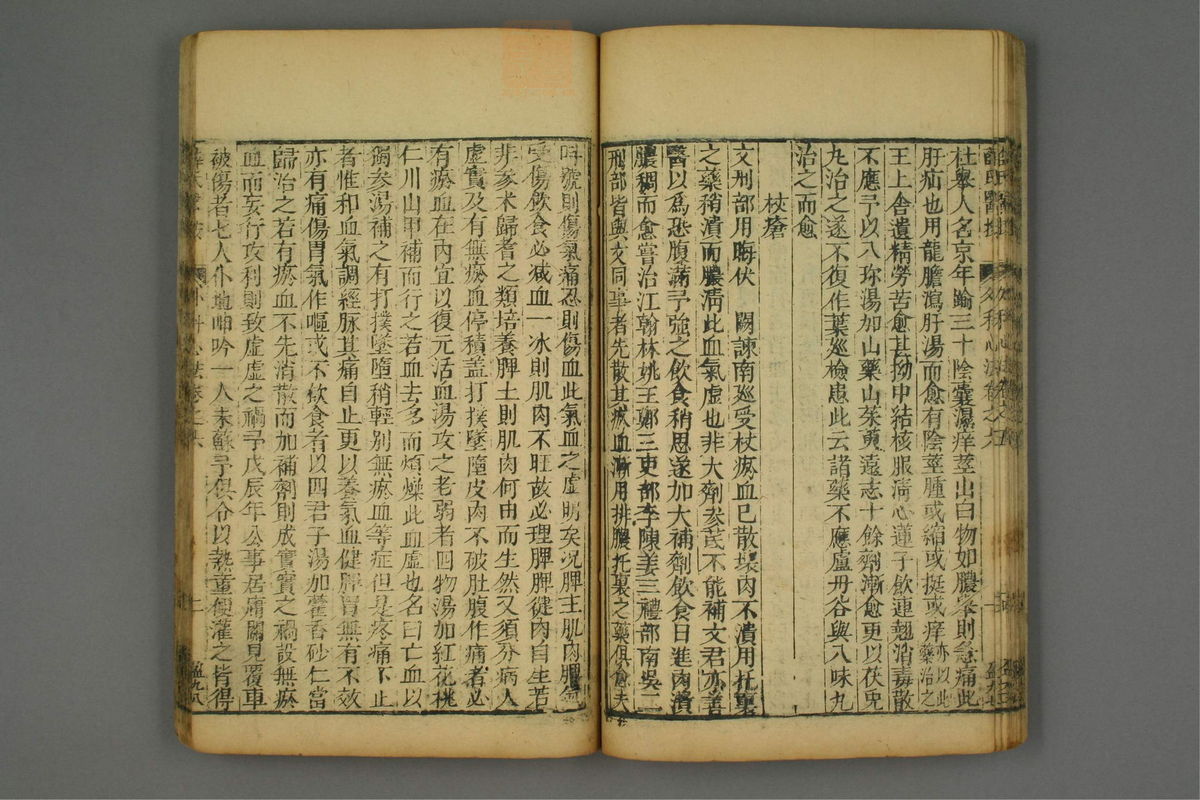 杜舉人名京年踰三十陰囊濕痒莖出白物如膿舉則急痛此
肝疝也用龍膽瀉肝湯而愈有陰莖腫或縮或挺或痒亦以此藥治之
王上舍遺精勞苦愈甚拗中結核服清心蓮子飲連翹消毒散
不應予以八珍湯加山藥山茱萸遠志十餘劑漸愈更以茯兔
丸治之遂不復作葉廵檢患此云諸藥不應盧丹谷與八味丸
治之而愈
杖瘡
文刑部用晦伏 闕諫南廵受杖瘀血巳散壞肉不潰用托裏
之藥稍潰而膿淸此血氣虛也非大劑參芪不能補文君亦善
醫以爲恐腹滿予強之飲食稍思遂加大補劑飲食日進肉潰
膿稠而愈嘗治江翰林姚王鄭三吏部李陳姜三禮部南吳二
刑部皆與文同事者先散其瘀血漸用排膿托裏之藥俱愈夫
叫號則傷氣痛忍則傷血此氣血之虛明矣况脾主肌肉脾氣
受傷飲食必减血一冰則肌肉不旺故必理脾脾健肉自生若
非參术歸耆之類培養脾土則肌肉何由而生然又須分病人
虛實及有無瘀血停積蓋打撲墜墮皮肉不破肚腹作痛者必
有瘀血在內宜以復元活血湯攻之老弱者四物湯加紅花桃
仁川山甲補而行之若血去多而煩燥此血虛也名曰亡血以
獨參湯補之有打撲墜墮稍輕别無瘀血等症但是疼痛不止
者惟和血氣調經脉其痛自止更以養氣血健脾胃無有不效
亦有痛傷胃氣作嘔或不飲食者以四君子湯加藿香砂仁當
歸治之若有瘀血不先消散而加補劑則成實實之禍設無瘀
血而妄行攻利則致虛虛之禍予戊辰年公事居庸關見覆車
被傷者七人仆地呻吟一人未蘇予俱令以熱童便灌之皆得